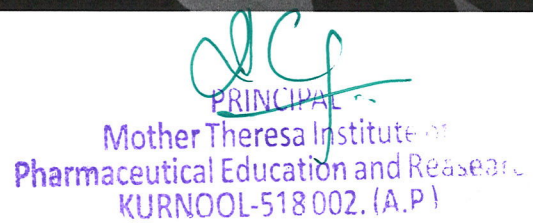 PRINCIPAL
Mother Theresa Institute of
Pharmaceutical Education and
KURNOOL-518 002. (A.P)